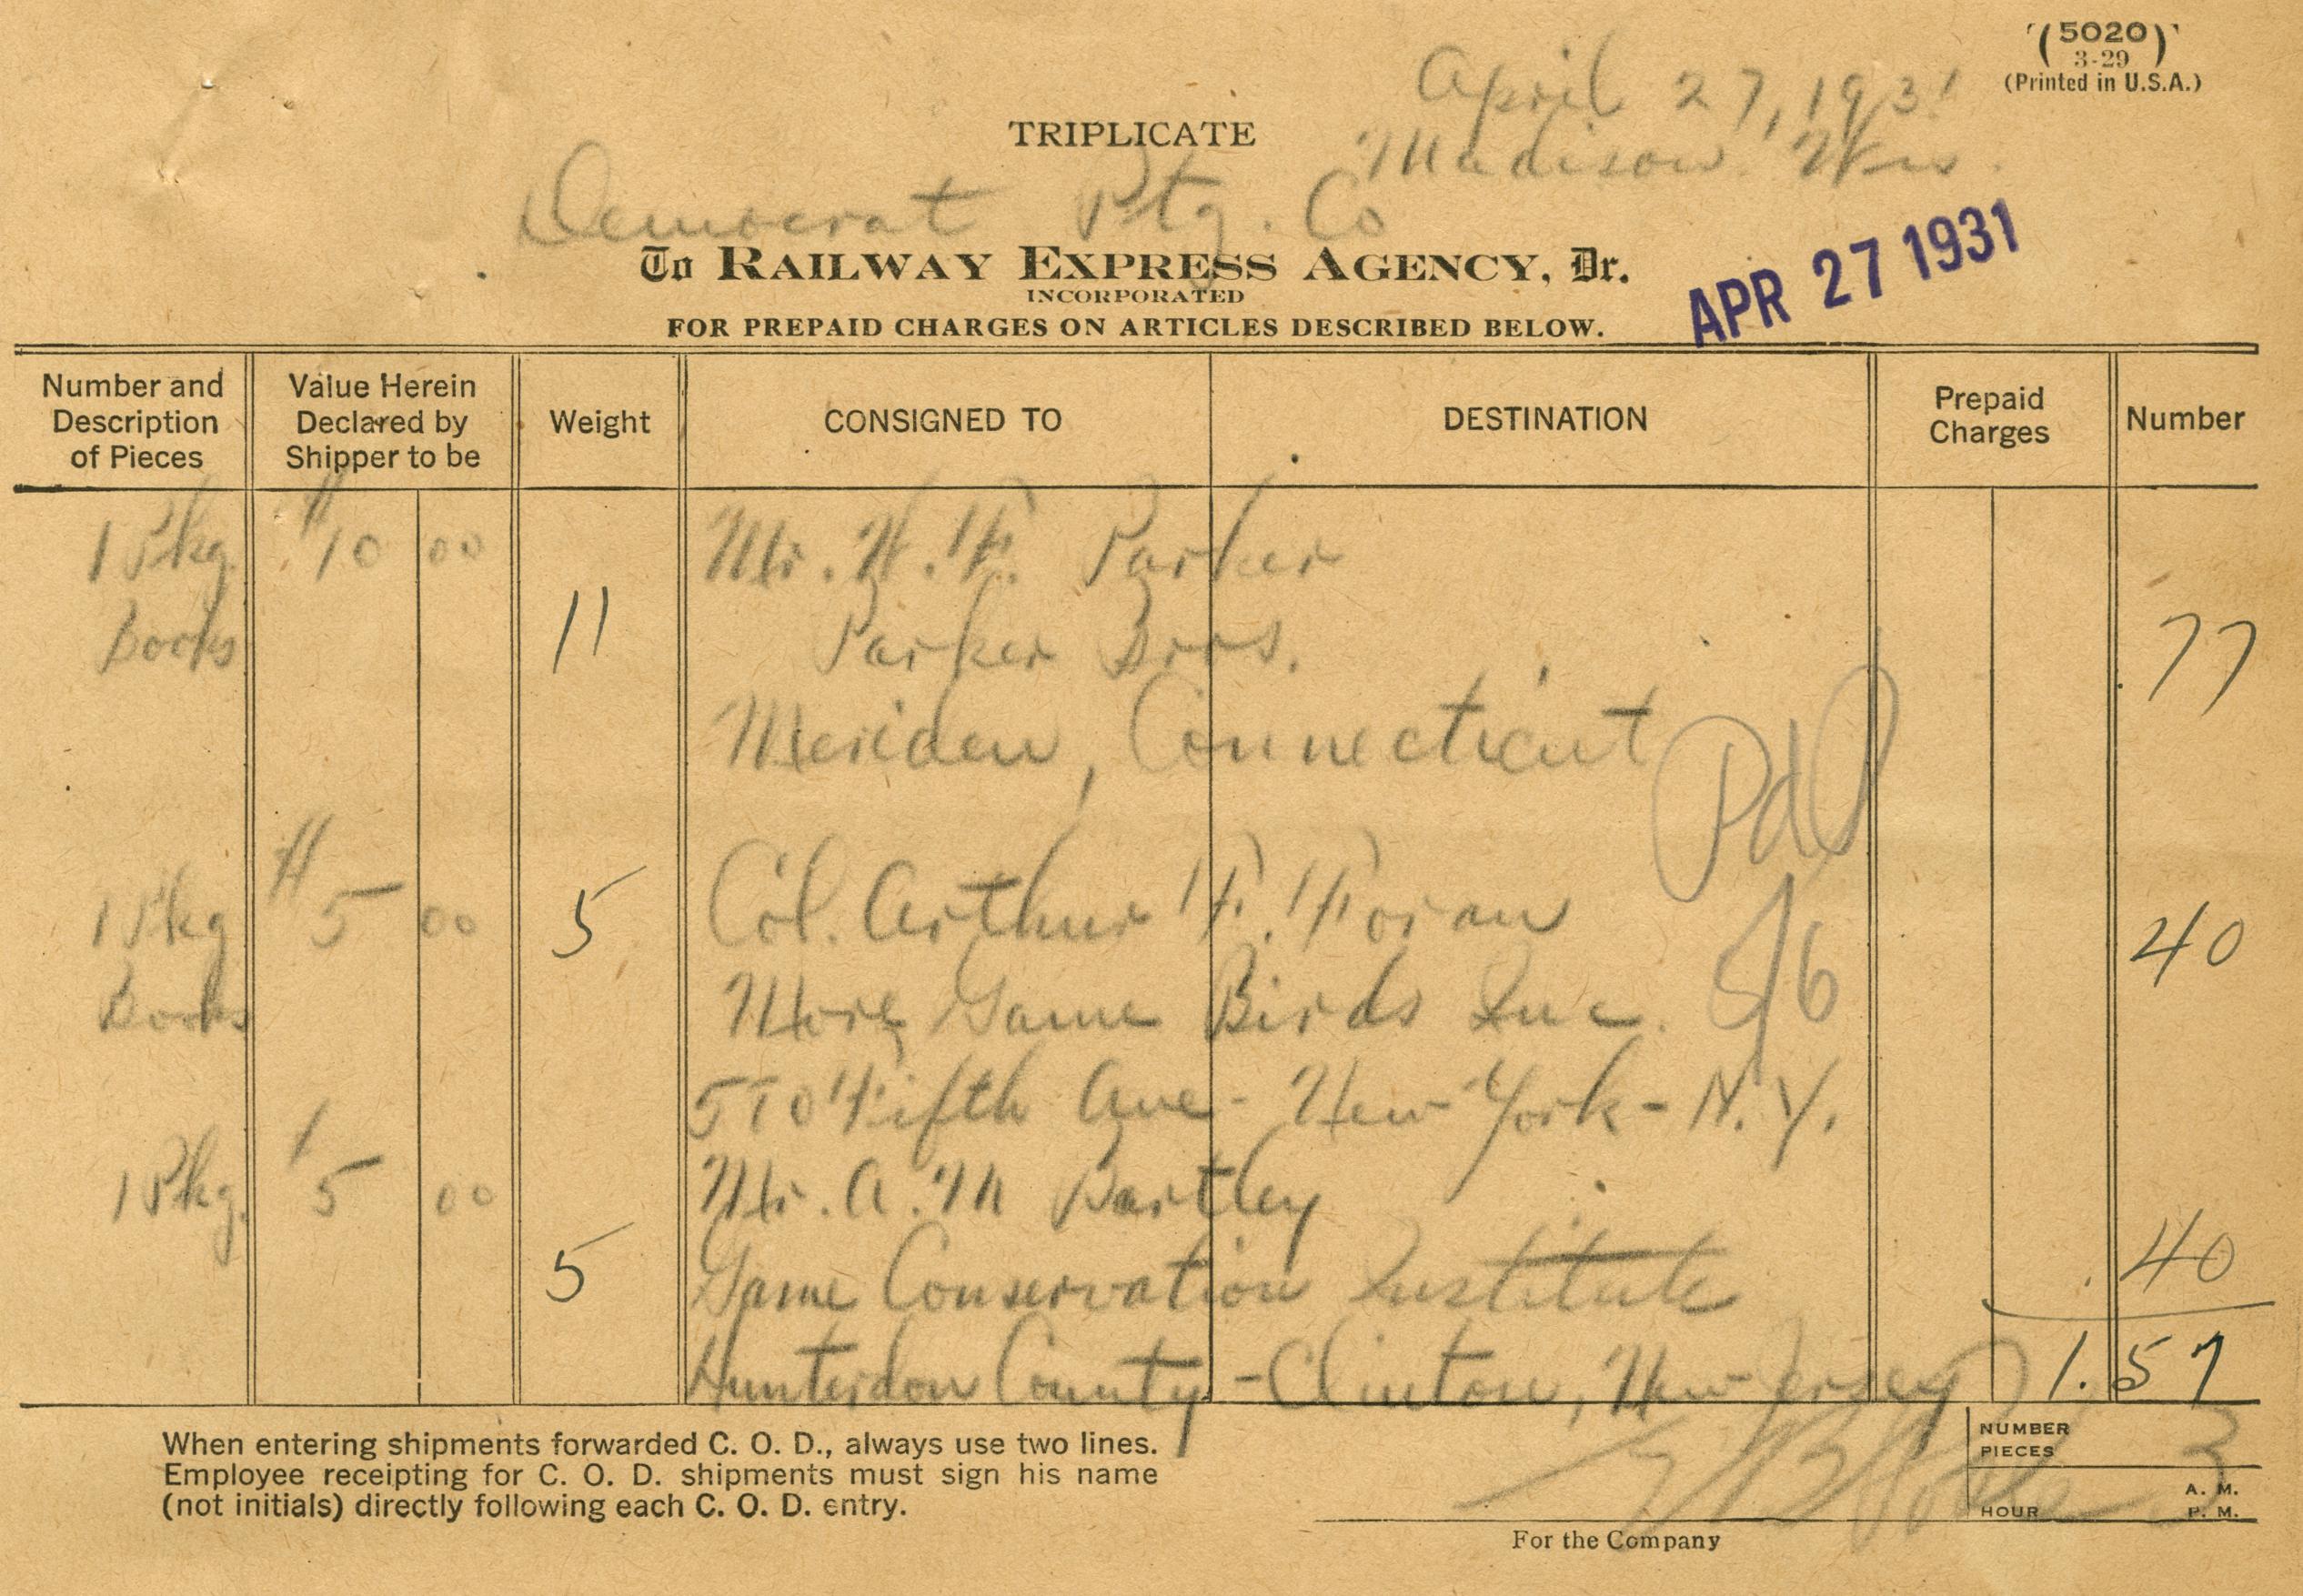 (5020)
3-29
(Printed in U.S.A.)
April 27, 1931
TRIPLICATE
Madison Wis.
Democrat Ptg. Co
To RAILWAY EXPRESS AGENCY, Dr.
INCORPORATED
APR 27 1931
FOR PREPAID CHARGES ON ARTICLES DESCRIBED BELOW.
Number and Description of Pieces Value Herein Declared by Shipper to be Weight CONSIGNED TO DESTINATION Prepaid Charges Number
1 Pkg. $10 00 Mr. W. F. Parker
Books 11 Parker Bros. 77
Meriden, Connecticut
Pd
1 Pkg $5 00 5 Col. Arthur F. Foran 40
Books More Game Birds Inc. 5/6
570 Fifth Ave - New York - N.Y.
1 Pkg. $5 00 Mr. A. M Bartley
5 Game Conservation Institute 40
Hunterdon County - Clinton, New Jersey 1.57
When entering shipments forwarded C. O. D., always use two lines.
Employee receipting for C. O. D. shipments must sign his name
(not initials) directly following each C. O. D. entry.
NUMBER PIECES 3
HOUR A. M. P. M.
For the Company